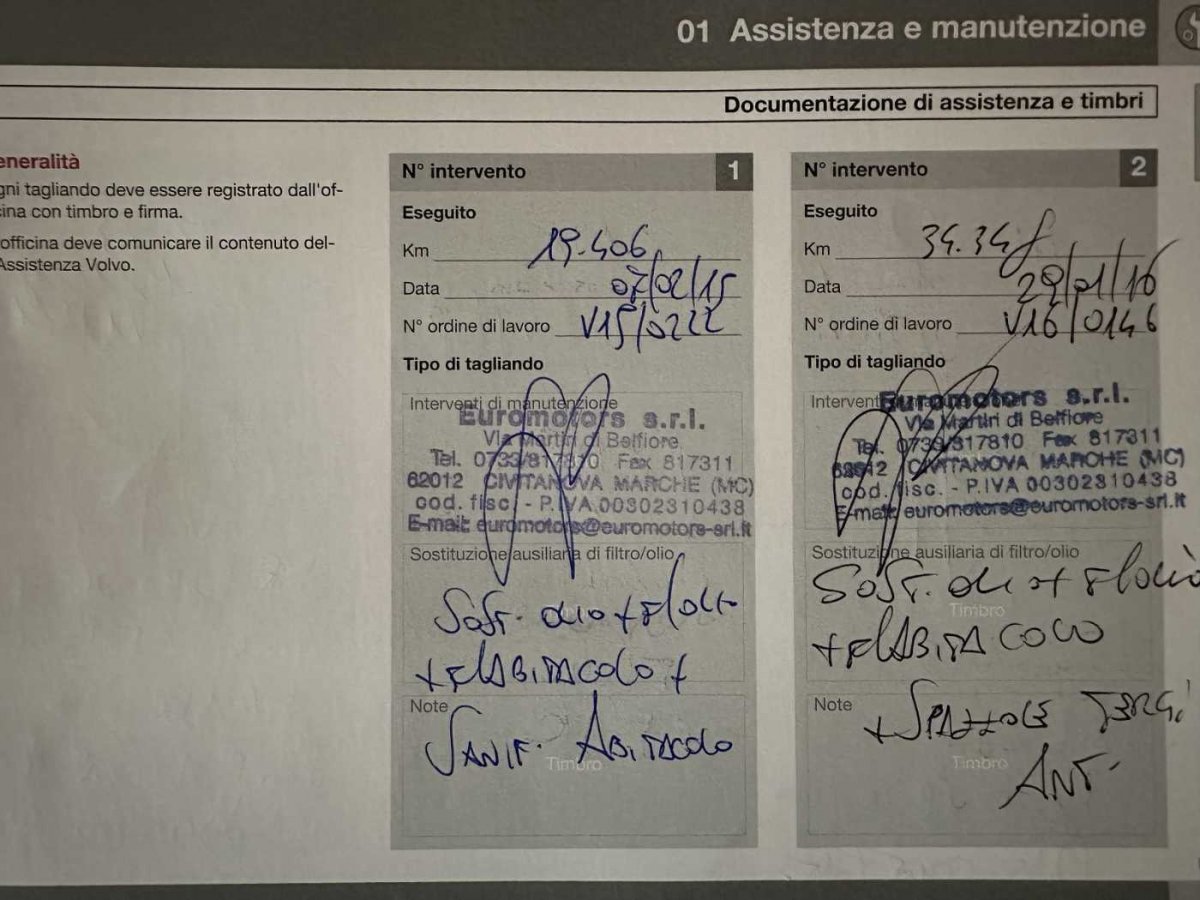 01 Assistenza e manutenzione
Documentazione di assistenza e timbri
eneralità
gni tagliando deve essere registrato dall'of-
cina con timbro e firma.
officina deve comunicare il contenuto del-
Assistenza Volvo.
N° intervento 1
Eseguito
Km 19.406
Data 07/02/15
N° ordine di lavoro V15/0222
Tipo di tagliando
Interventi di manutenzione
Euromotors s.r.l.
Via Martiri di Belfiore
Tel. 0733/817810 Fax 817311
62012 CIVITANOVA MARCHE (MC)
cod. fisc. - P.IVA 00302310438
E-mail: euromotors@euromotors-srl.it
Sostituzione ausiliaria di filtro/olio
Sost. olio + F/olio
+ F/ABITACOLO +
Note
SANIF. ABITACOLO
Timbro
N° intervento 2
Eseguito
Km
Data 29/01/16
N° ordine di lavoro V16/0146
Tipo di tagliando
Intervent
Euromotors s.r.l.
Via Martiri di Belfiore
Tel. 0733/817810 Fax 817311
62012 CIVITANOVA MARCHE (MC)
cod. fisc. - P.IVA 00302310438
E-mail: euromotors@euromotors-srl.it
Sostituzione ausiliaria di filtro/olio
SOST. olio + F/olio
Timbro
+ F/ABITACOLO
Note
+ SPAZZOLE TERGI
Timbro
ANT.